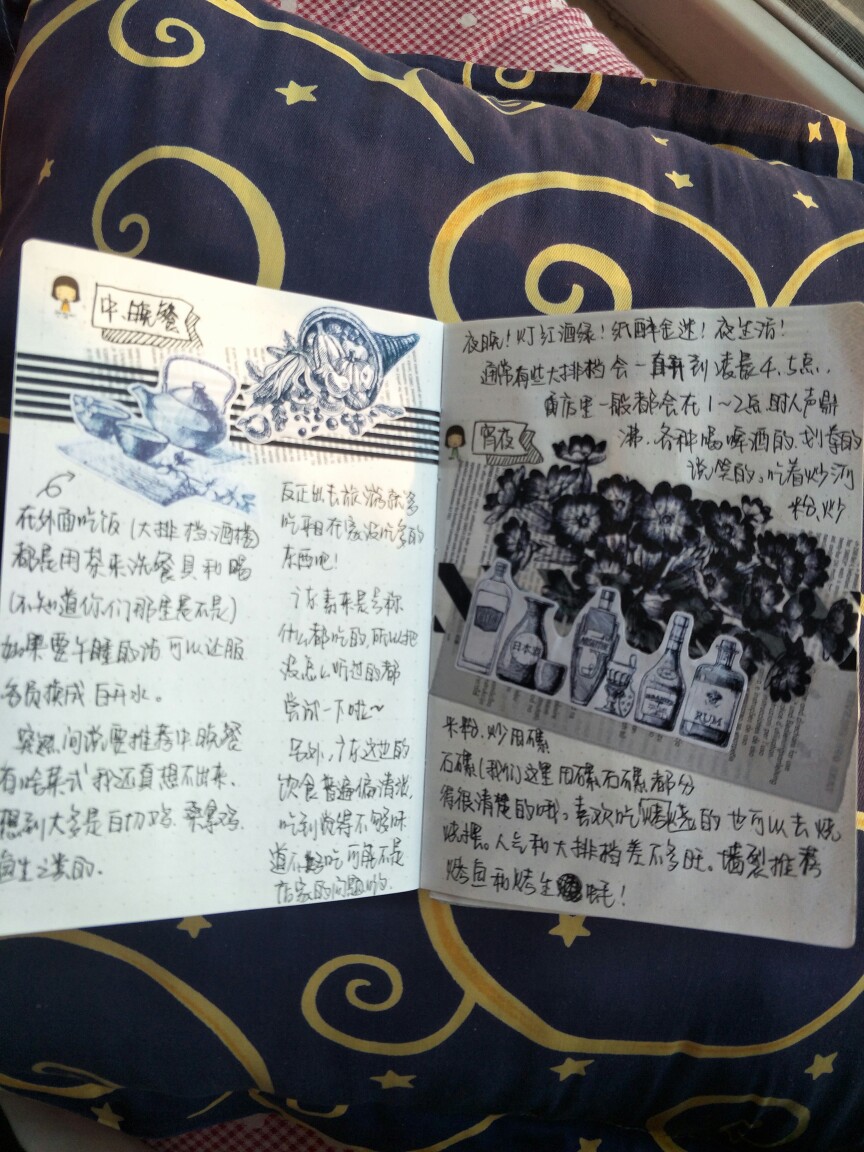 中、晚餐
在外面吃饭(大排档、酒楼)
都是用茶来洗餐具和喝
(不知道你们那里是不是)
如果要午睡的话可以让服
务员换成白开水。
突然间说要推荐中晚餐
有啥菜式我还真想不出来、
想到大多是白切鸡、桑拿鸡、
鱼生之类的。
反正出去旅游就多
吃那在家没吃多的
东西吧!
广东素来是号称
什么都吃的,所以把
没怎么听过的都
尝试一下啦~
另外,广东这边的
饮食普遍偏清淡,
吃到觉得不够味
道不好吃可能不是
店家的问题哟。
夜晚!灯红酒绿!纸醉金迷!夜生活!
通常有些大排档会一直开到凌晨4、5点、
店里一般都会在1~2点时人声鼎
沸、各种喝啤酒的、划拳的
说笑的、吃着炒河
粉、炒
宵夜
日本酒
RUM
米粉、炒田螺
石螺(我们这里田螺石螺都分
得很清楚的哦。喜欢吃烧烤的也可以去烧
烤摊。人气和大排档差不多旺。墙裂推荐
烤鱼和烤生蚝!